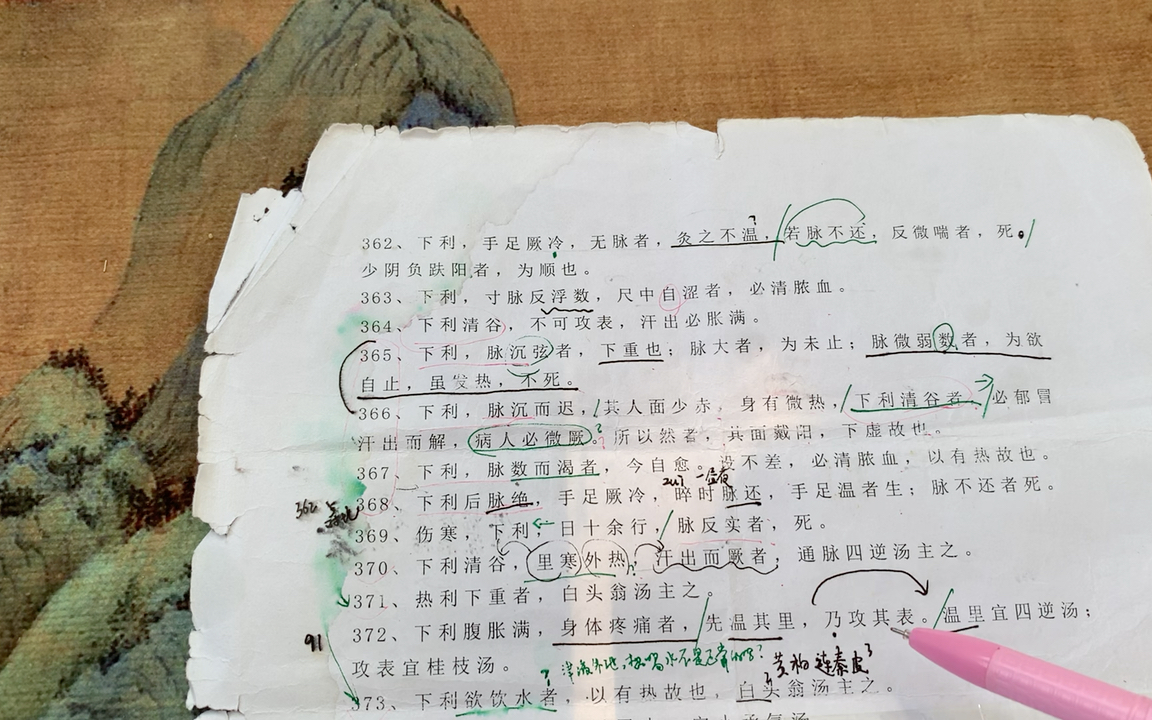 362、下利，手足厥冷，无脉者，灸之不温，若脉不还，反微喘者，死。
少阴负趺阳者，为顺也。
363、下利，寸脉反浮数，尺中自涩者，必清脓血。
364、下利清谷，不可攻表，汗出必胀满。
365、下利，脉沉弦者，下重也；脉大者，为未止；脉微弱数者，为欲
自止，虽发热，不死。
366、下利，脉沉而迟，其人面少赤，身有微热，下利清谷者，必郁冒
汗出而解，病人必微厥。所以然者，其面戴阳，下虚故也。
367、下利，脉数而渴者，今自愈。设不差，必清脓血，以有热故也。
368、下利后脉绝，手足厥冷，晬时脉还，手足温者生；脉不还者死。
362
369、伤寒，下利，日十余行，脉反实者，死。
370、下利清谷，里寒外热，汗出而厥者，通脉四逆汤主之。
371、热利下重者，白头翁汤主之。
372、下利腹胀满，身体疼痛者，先温其里，乃攻其表。温里宜四逆汤；
91
攻表宜桂枝汤。
黄柏 连秦皮
373、下利欲饮水者，以有热故也，白头翁汤主之。